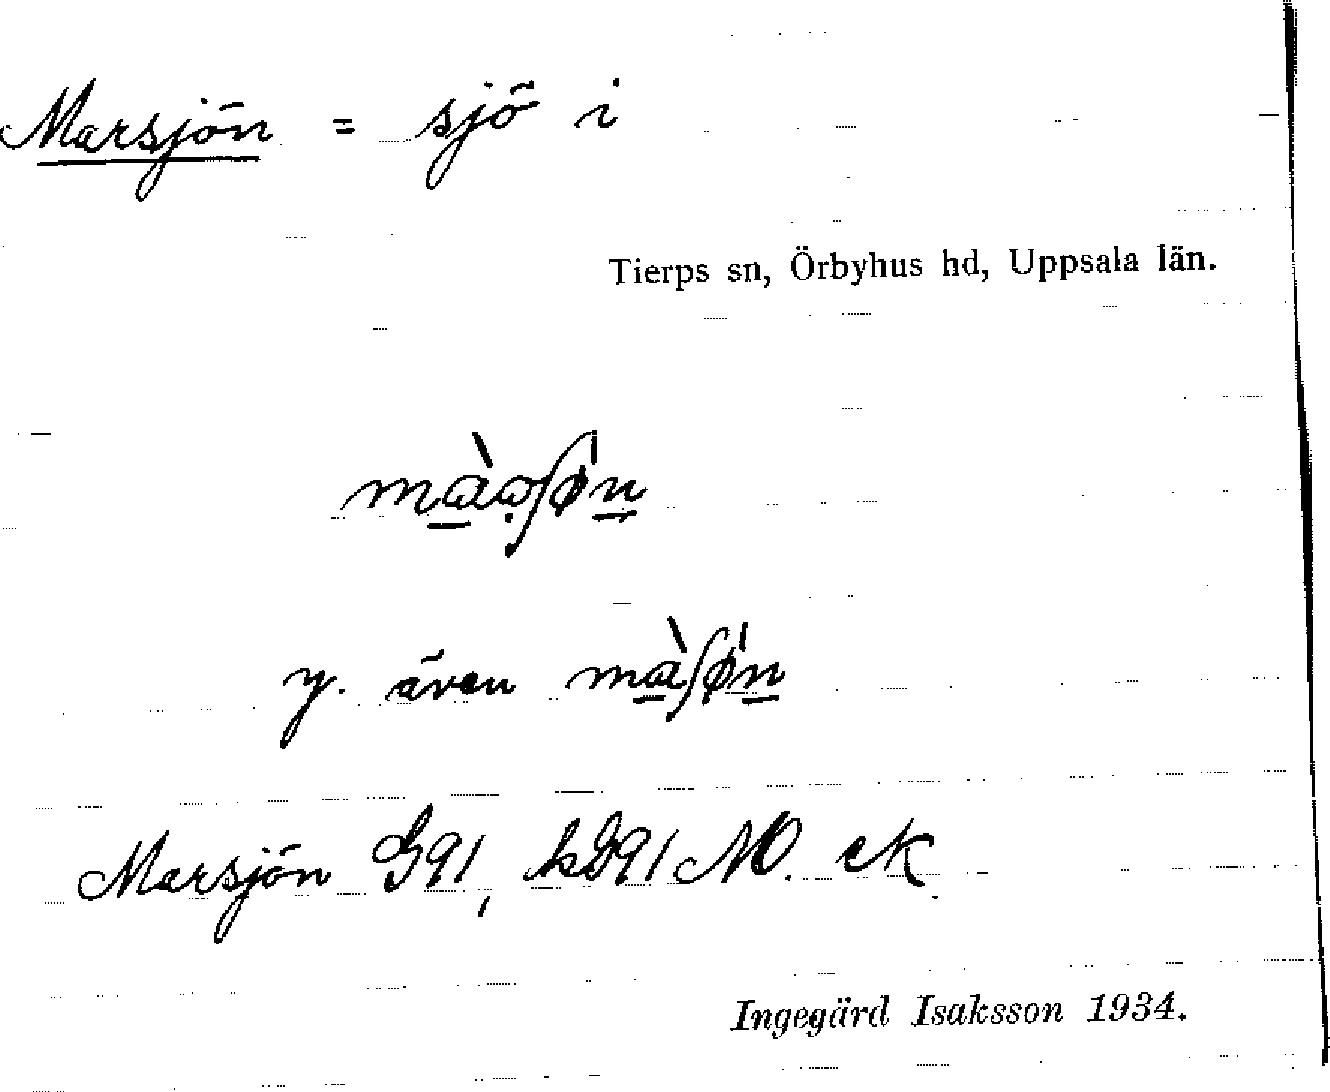 Marsjön = sjö i
Tierps sn, Örbyhus hd, Uppsala län.
y. även
Marsjön G91, kD91 NO. ek
Ingegärd Isaksson 1934.